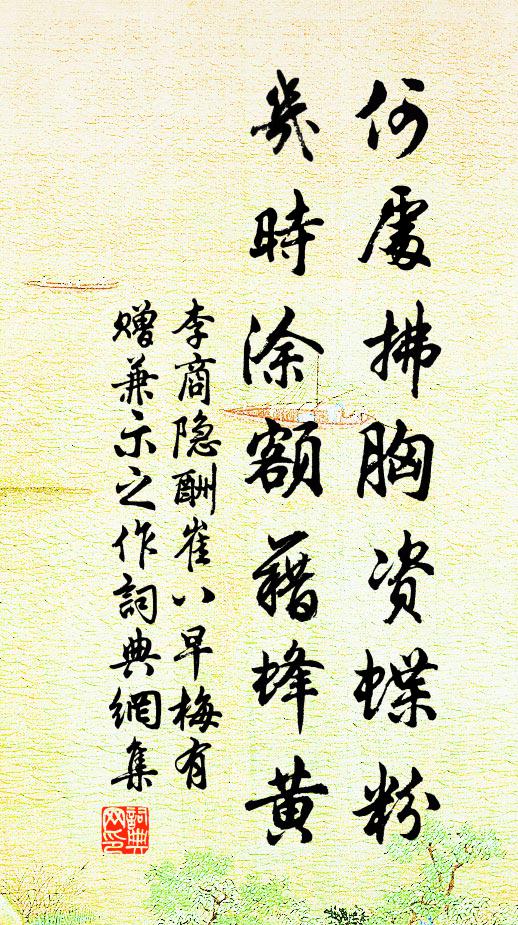 何處拂胸資蝶粉
幾時涂額藉蜂黃
李商隐酬崔八早梅有
贈兼示之作詞典網集
詞典网印